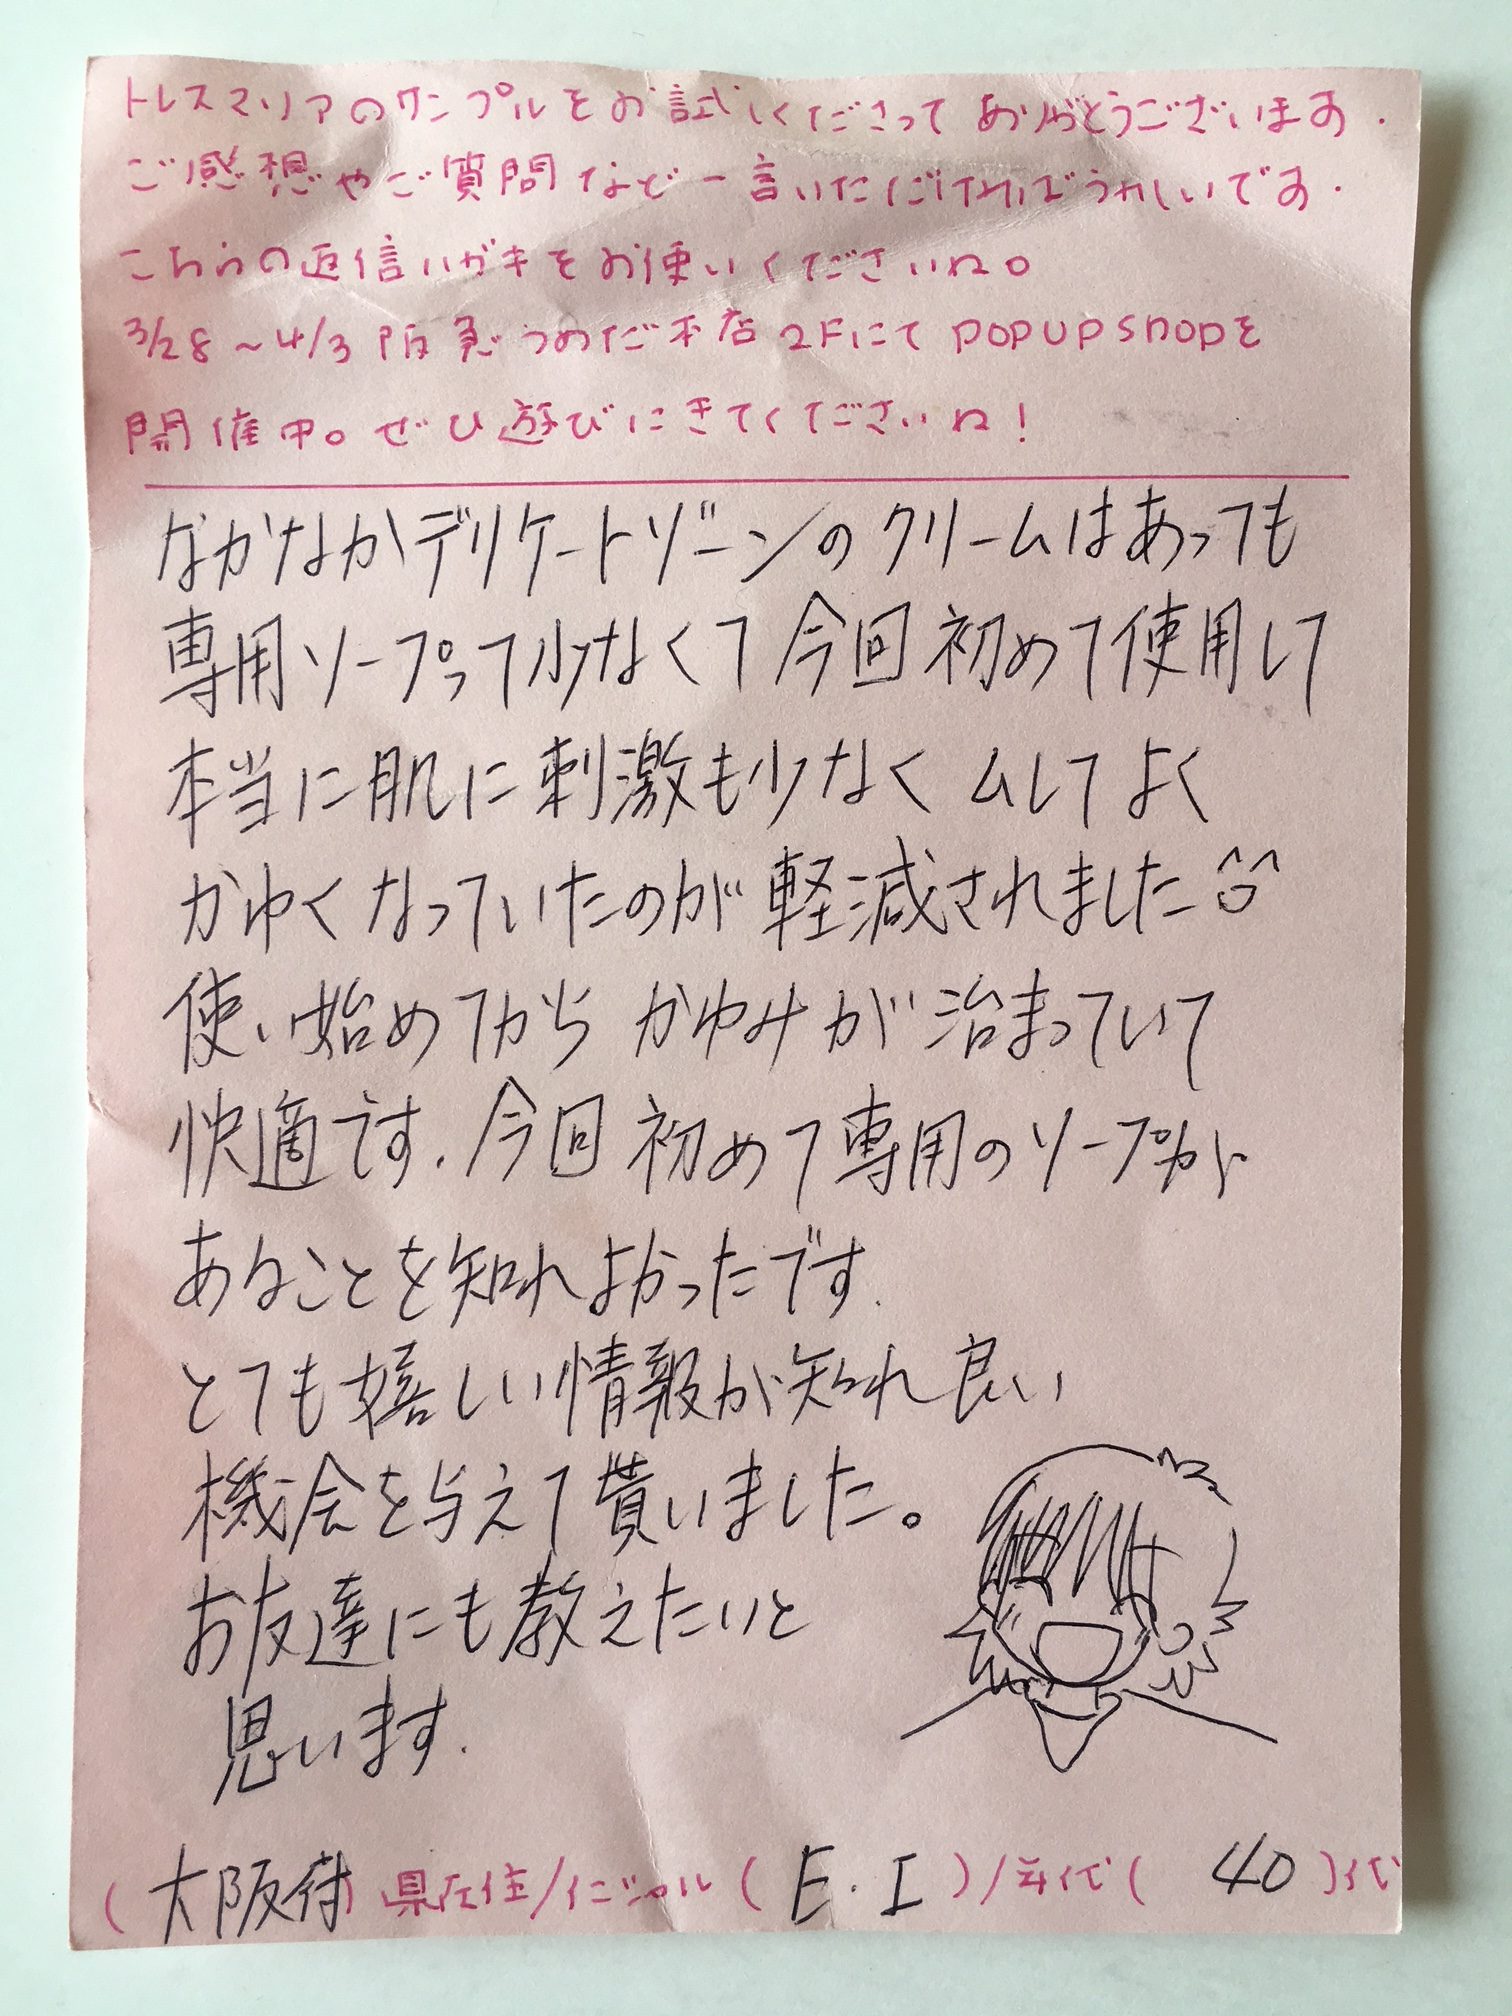 トレスマリアのサンプルをお試しくださってありがとうございます.
ご感想やご質問など一言いただければうれしいです.
こちらの返信ハガキをお使いくださいね。
3/28~4/3 阪急うめだ本店2FにてPOPUPSHOPを
開催中。ぜひ遊びにきてくださいね!
なかなかデリケートゾーンのクリームはあっても
専用ソープって少なくて今回初めて使用して
本当に肌に刺激も少なく ムレてよく
かゆくなっていたのが軽減されました
使い始めてから かゆみが治まっていて
快適です.今回初めて専用のソープが
あることを知れよかったです.
とても嬉しい情報が知れ良い
機会を与えて貰いました。
お友達にも教えたいと
思います.
(大阪府)県在住/イニシャル(E.I)/年代(40)代